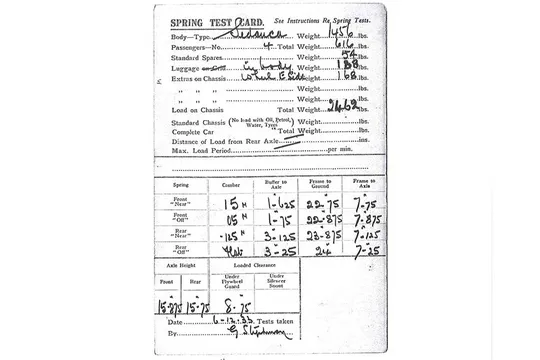 SPRING TEST CARD. See Instructions Re Spring Tests.
Body—Type Sedanca Weight 1456 lbs.
Passengers—No. 4 Total Weight 616 lbs.
Standard Spares Weight 54 lbs.
Luggage in body Weight 188 lbs.
Extras on Chassis Weight 168 lbs.
„ „ „ Weight lbs.
„ „ „ Weight lbs.
Load on Chassis Total Weight 2462 lbs.
Standard Chassis (No load with Oil, Petrol, Water, Tyres) Weight lbs.
Complete Car Total Weight lbs.
Distance of Load from Rear Axle ins.
Max. Load Period per min.
Spring Camber Buffer to Axle Frame to Ground Frame to Axle
Front "Near" 15" 1-625 22-75 7-75
Front "Off" 05" 1-75 22-875 7-875
Rear "Near" -125" 3-125 23-875 7-125
Rear "Off" Flat 3-25 24 7-25
Axle Height Loaded Clearance
Front Rear Under Flywheel Guard Under Silencer Boost
15-875 15-75 8-75
Date 6-12-33 Tests taken
By G